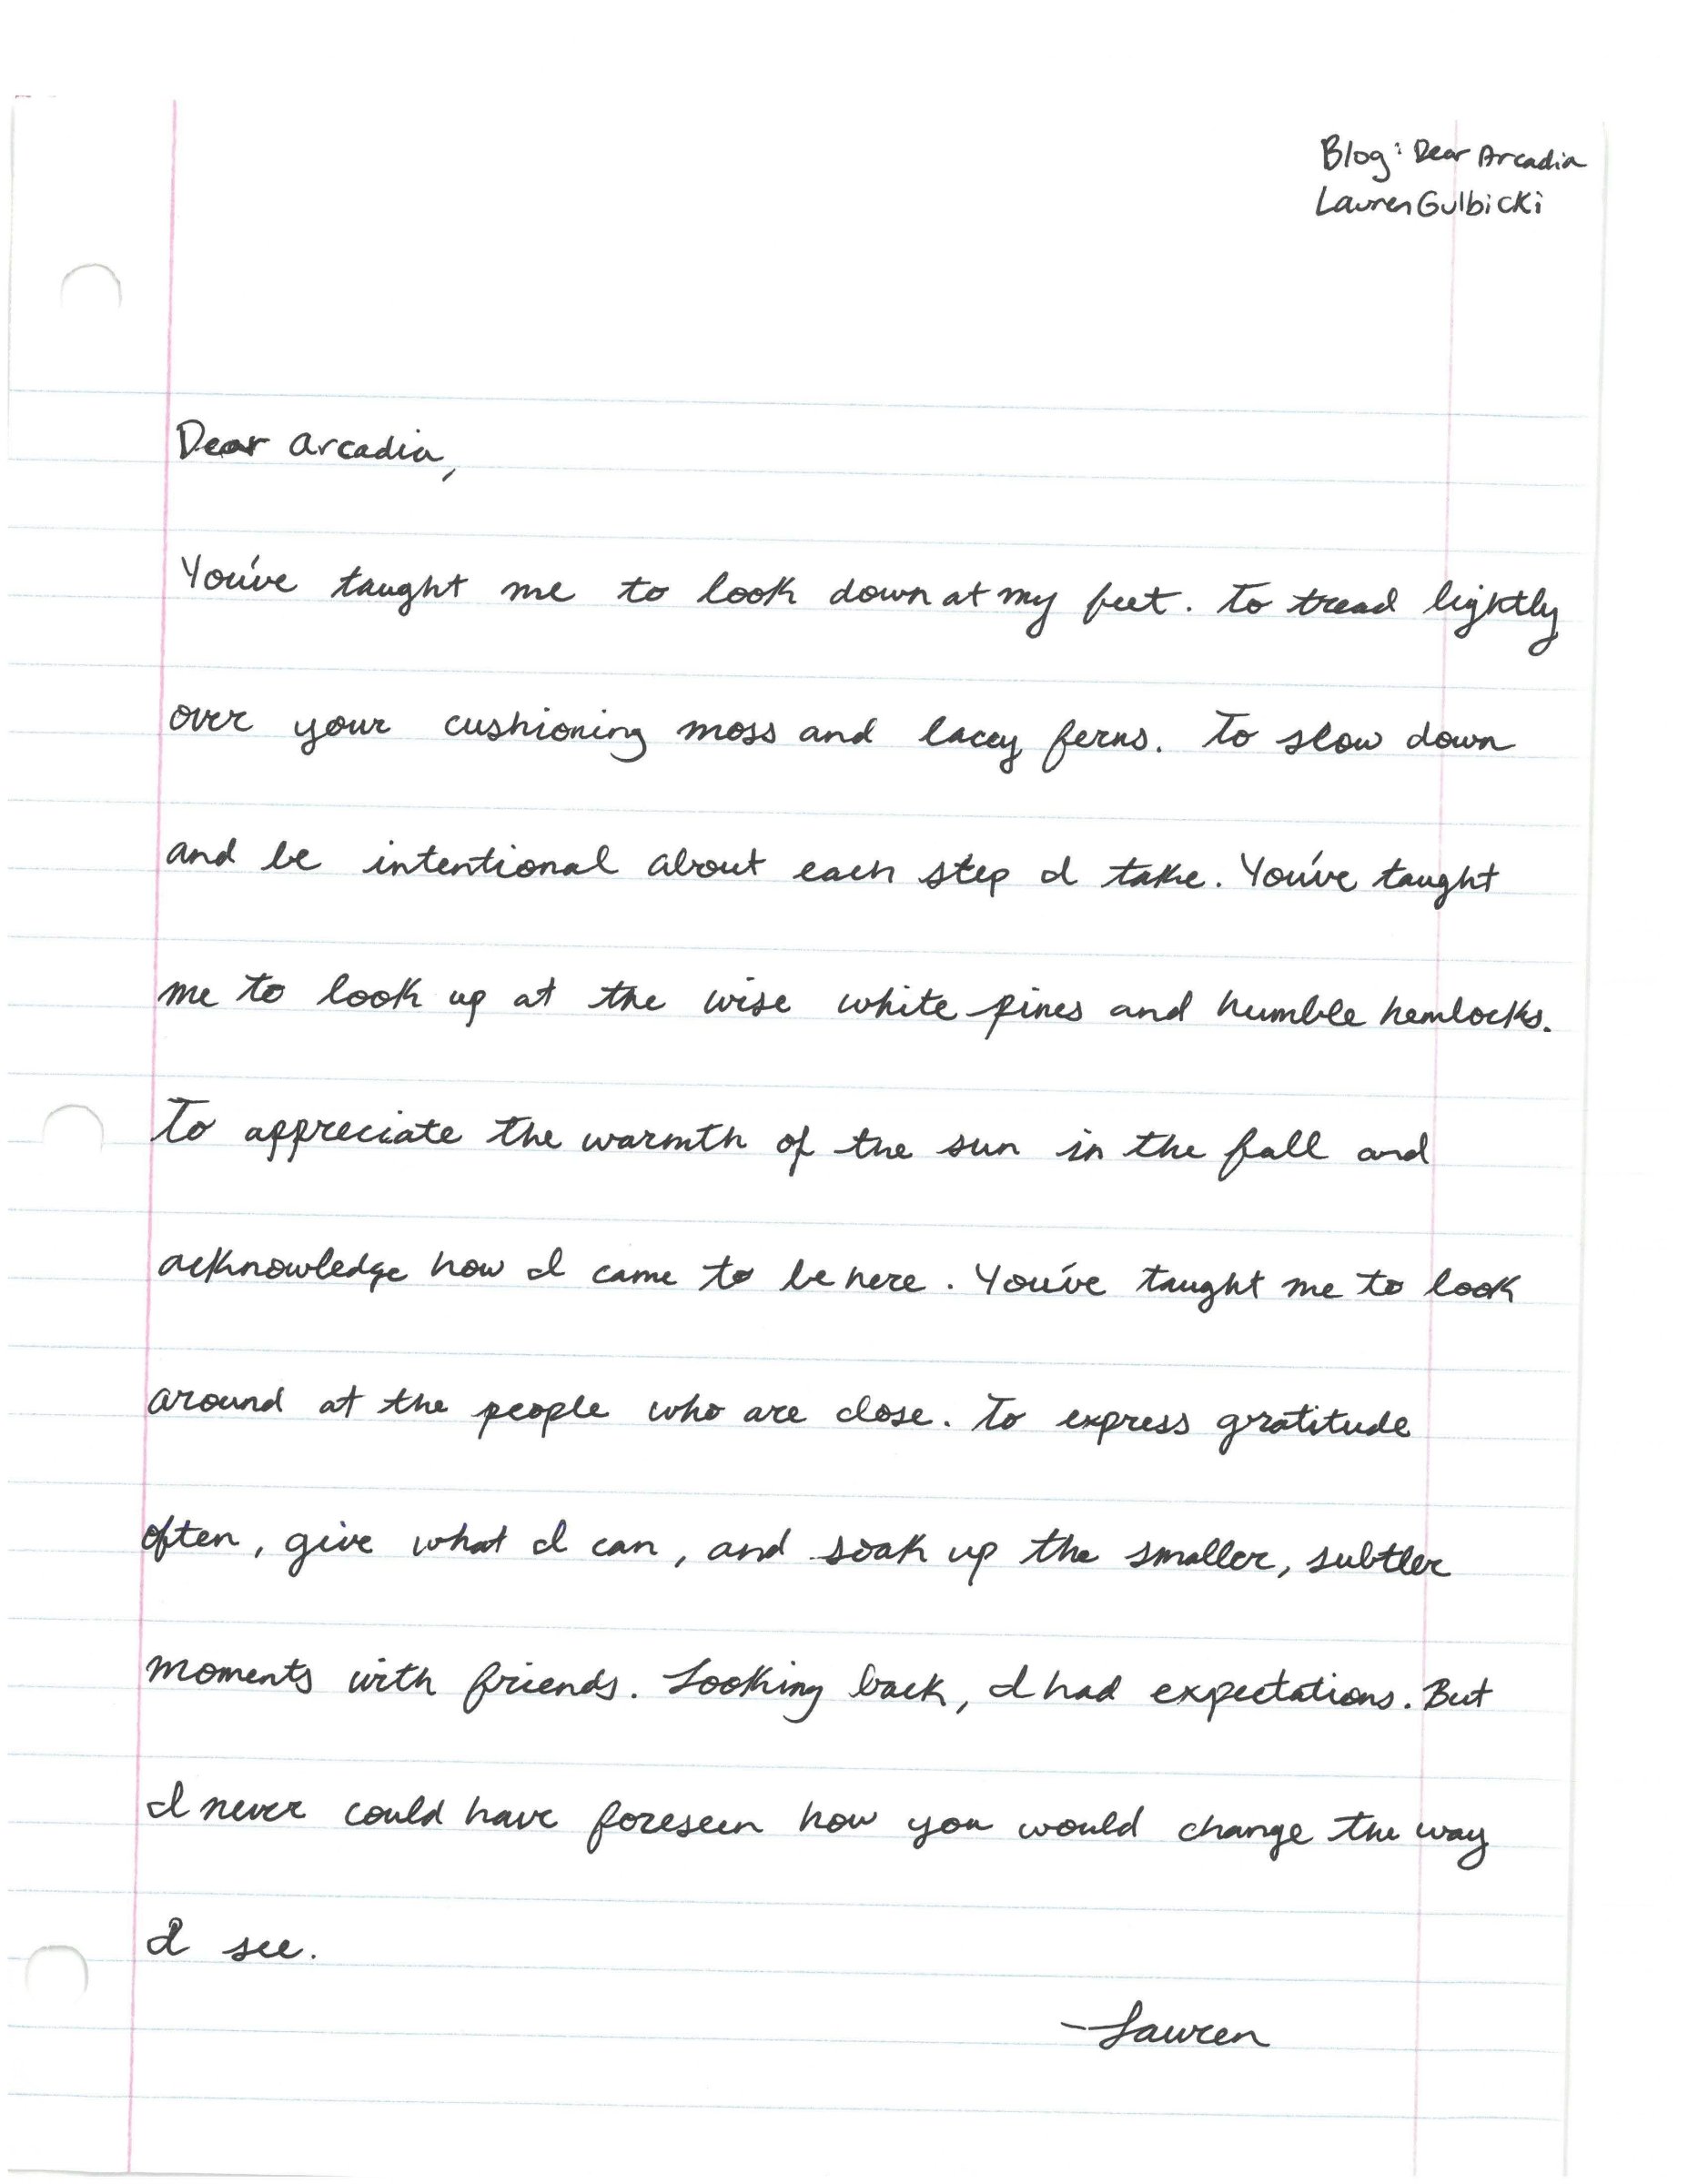 Blog: Dear Arcadia
Lauren Gulbicki
Dear Arcadia,
You've taught me to look down at my feet. To tread lightly
over your cushioning moss and lacey ferns. To slow down
and be intentional about each step I take. You've taught
me to look up at the wise white pines and humble hemlocks.
To appreciate the warmth of the sun in the fall and
acknowledge how I came to be here. You've taught me to look
around at the people who are close. To express gratitude
often, give what I can, and soak up the smaller, subtler
moments with friends. Looking back, I had expectations. But
I never could have foreseen how you would change the way
I see.
-Lauren